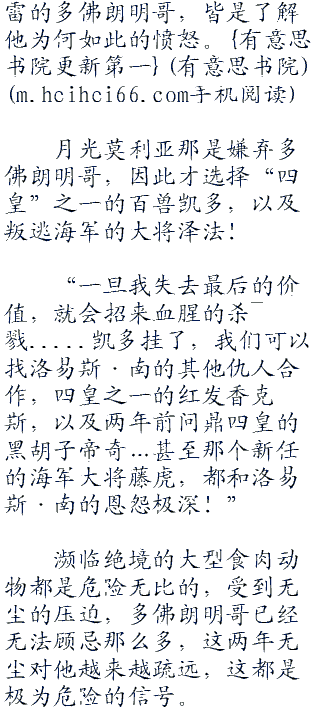 雷的多佛朗明哥，皆是了解
他为何如此的愤怒。{有意思
书院更新第一}(有意思书院)
(m.hcihci66.com手机阅读)
月光莫利亚那是嫌弃多
佛朗明哥，因此才选择“四
皇”之一的百兽凯多，以及
叛逃海军的大将泽法！
“一旦我失去最后的价
值，就会招来血腥的杀¯
戮.....凯多挂了，我们可以
找洛易斯·南的其他仇人合
作，四皇之一的红发香克
斯，以及两年前问鼎四皇的
黑胡子帝奇...甚至那个新任
的海军大将藤虎，都和洛易
斯·南的恩怨极深！”
濒临绝境的大型食肉动
物都是危险无比的，受到无
尘的压迫，多佛朗明哥已经
无法顾忌那么多，这两年无
尘对他越来越疏远，这都是
极为危险的信号。